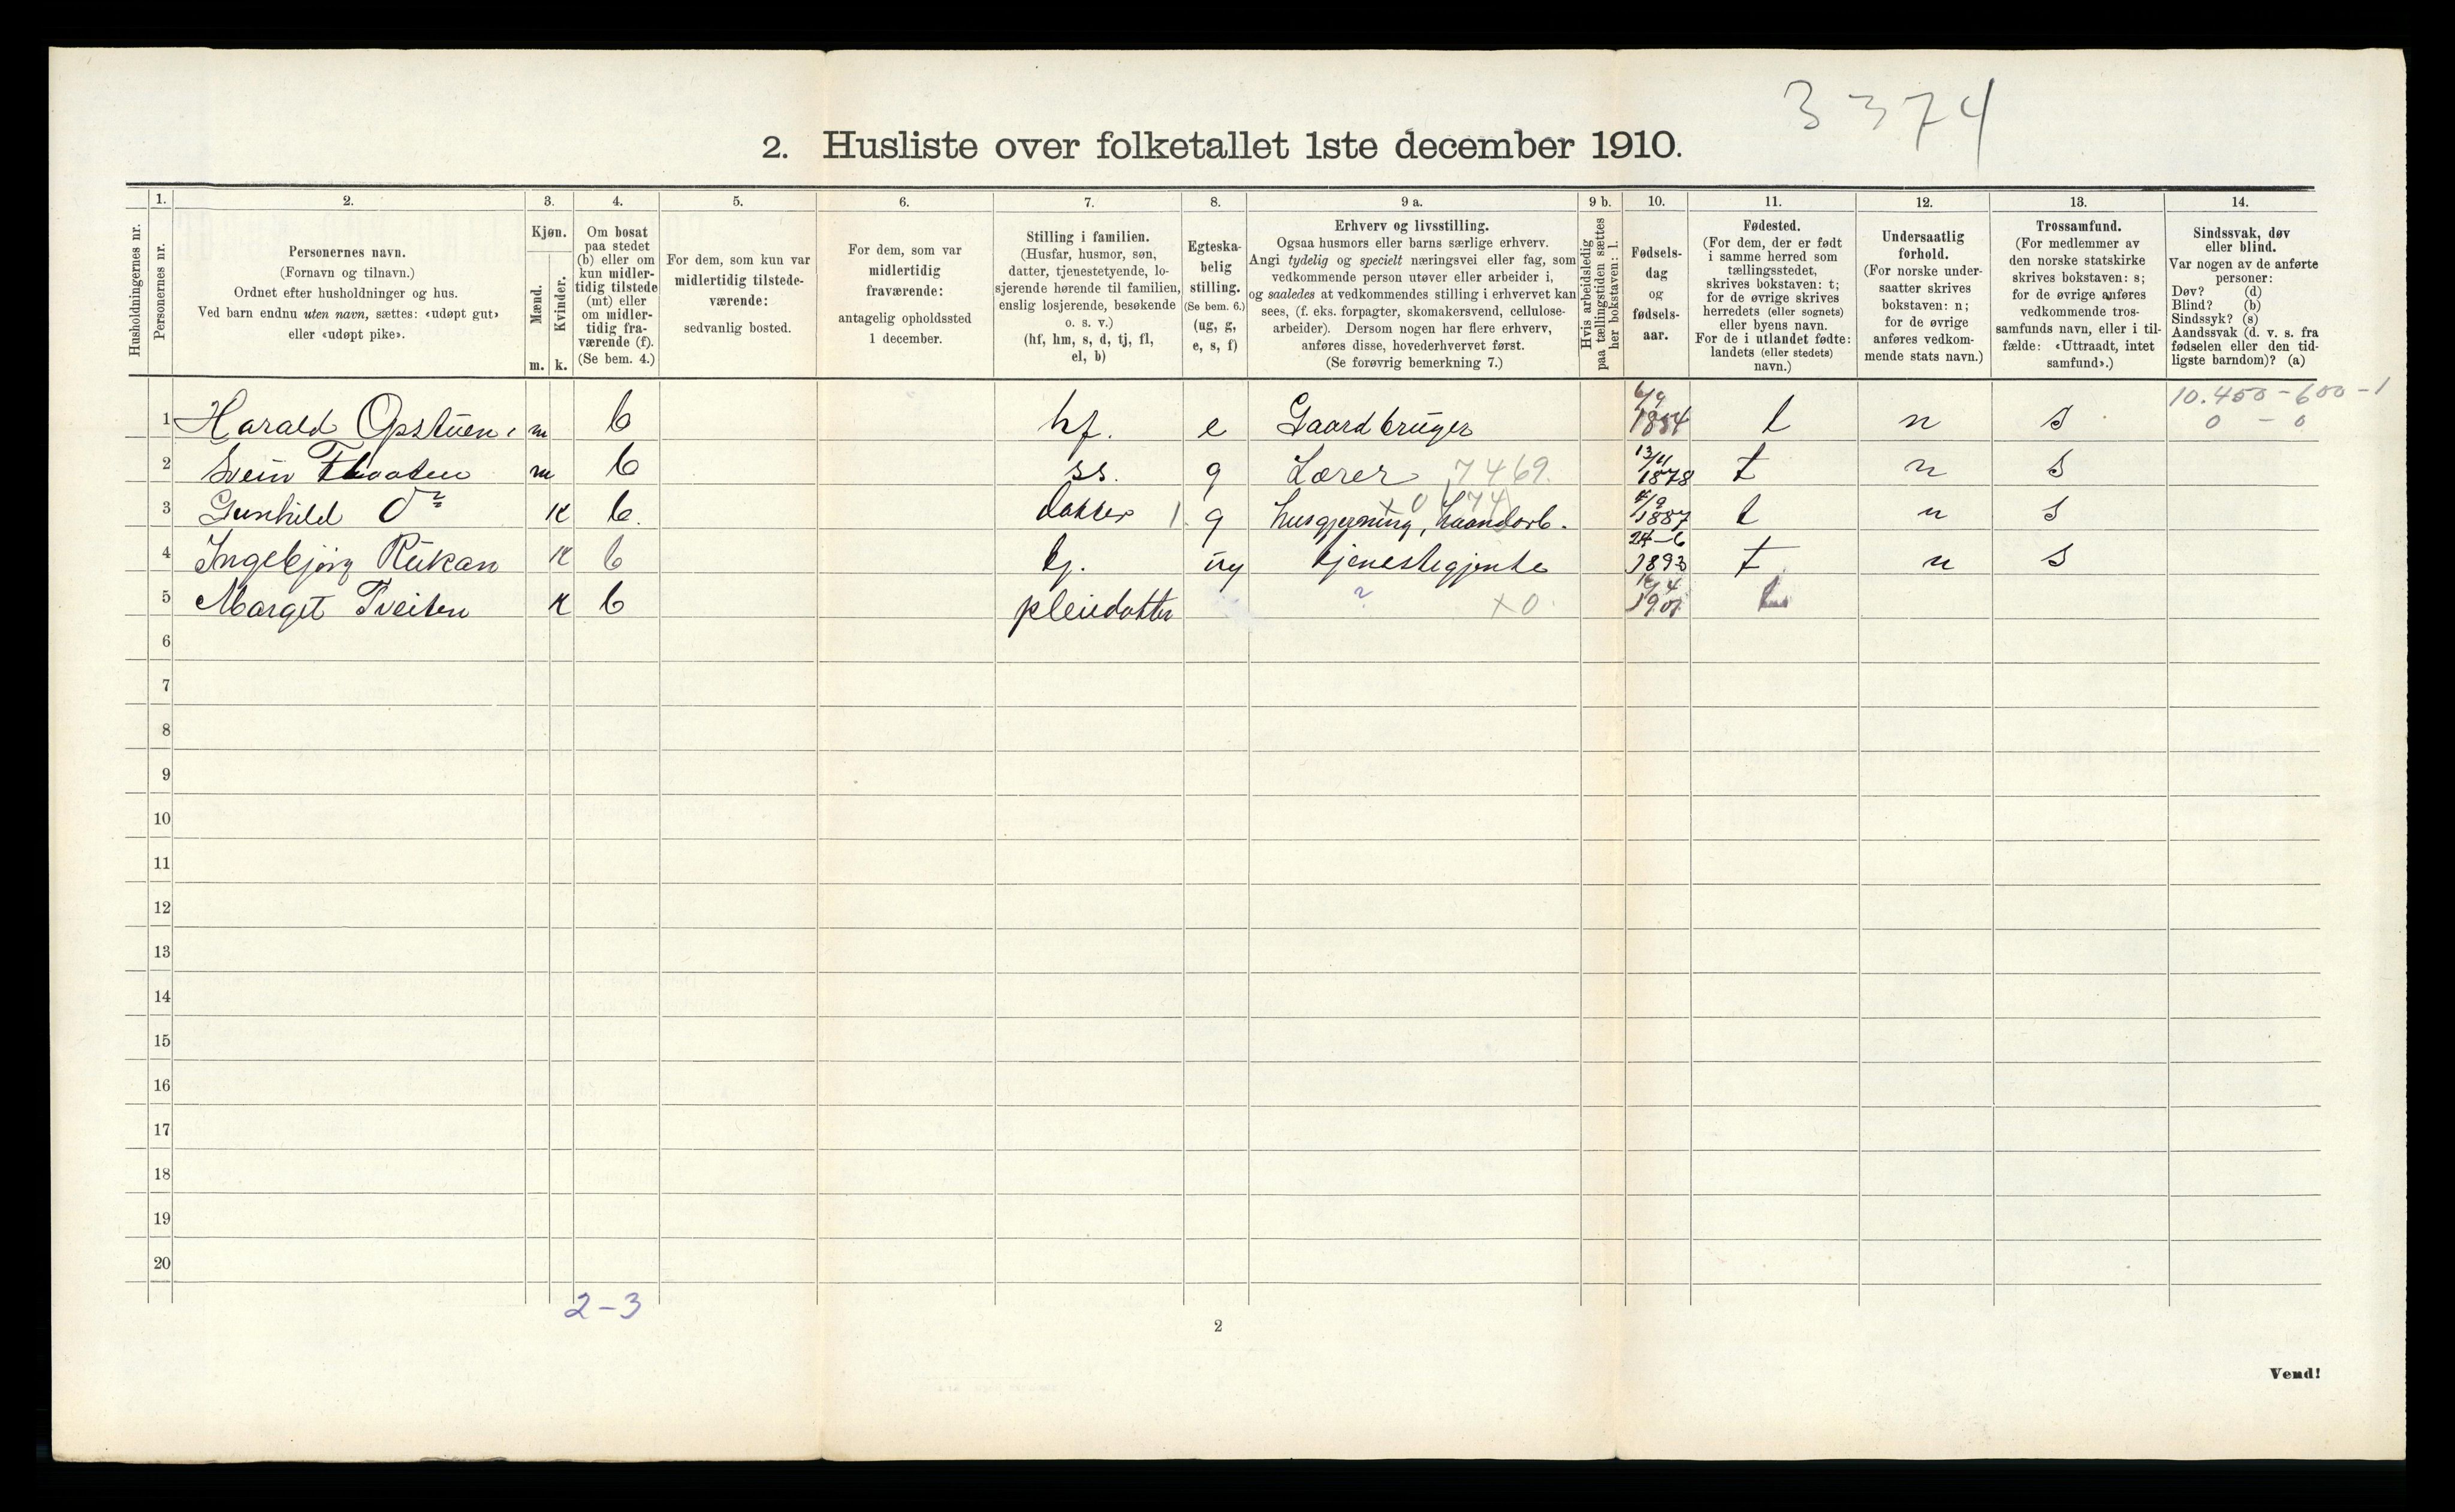 3374
2. Husliste over folketallet 1ste december 1910.
Husholdningernes nr.
1. Personernes nr.
2. Personernes navn.
(Fornavn og tilnavn.)
Ordnet efter husholdninger og hus.
Ved barn endnu uten navn, sættes: «udøpt gut»
eller «udøpt pike».
3. Kjøn.
Mænd. m.
Kvinder. k.
4. Om bosat
paa stedet
(b) eller om
kun midler-
tidig tilstede
(mt) eller
om midler-
tidig fra-
værende (f).
(Se bem. 4.)
5. For dem, som kun var
midlertidig tilstede-
værende:
sedvanlig bosted.
6. For dem, som var
midlertidig
fraværende:
antagelig opholdssted
1 december.
7. Stilling i familien.
(Husfar, husmor, søn,
datter, tjenestetyende, lo-
sjerende hørende til familien,
enslig losjerende, besøkende
o. s. v.)
(hf, hm, s, d, tj, fl,
el, b)
8. Egteska-
belig
stilling.
(Se bem. 6.)
(ug, g,
e, s, f)
9 a. Erhverv og livsstilling.
Ogsaa husmors eller barns særlige erhverv.
Angi tydelig og specielt næringsvei eller fag, som
vedkommende person utøver eller arbeider i,
og saaledes at vedkommendes stilling i erhvervet kan
sees, (f. eks. forpagter, skomakersvend, cellulose-
arbeider). Dersom nogen har flere erhverv,
anføres disse, hovederhvervet først.
(Se forøvrig bemerkning 7.)
9 b. Hvis arbeidsledig
paa tællingstiden sættes
her bokstaven: l.
10. Fødsels-
dag
og
fødsels-
aar.
11. Fødested.
(For dem, der er født
i samme herred som
tællingsstedet,
skrives bokstaven: t;
for de øvrige skrives
herredets (eller sognets)
eller byens navn.
For de i utlandet fødte:
landets (eller stedets)
navn.)
12. Undersaatlig
forhold.
(For norske under-
saatter skrives
bokstaven: n;
for de øvrige
anføres vedkom-
mende stats navn.)
13. Trossamfund.
(For medlemmer av
den norske statskirke
skrives bokstaven: s;
for de øvrige anføres
vedkommende tros-
samfunds navn, eller i til-
fælde: «Uttraadt, intet
samfund».)
14. Sindssvak, døv
eller blind.
Var nogen av de anførte
personer:
Døv? (d)
Blind? (b)
Sindssyk? (s)
Aandssvak (d. v. s. fra
fødselen eller den tid-
ligste barndom)? (a)
1 Harald Opstuen m b hf. e Gaardbruger 6/9 t n s 10.450-600-1
0 - 0
2 Svein m b ss. g Lærer 7469. 13/11 1878 t n s
3 Gunhild Do k b. datter 1. g husgjerning, haandarb. x0 74 1887 t n s
4 Ingebjörg Rukan k b tj. ug tjenestegjente 24-6 1893 t n s
5 Marget Tveiten k b pleiedatter ? x0 16/4 1901
6
7
8
9
10
11
12
13
14
15
16
17
18
19
20
2-3
2
Vend!